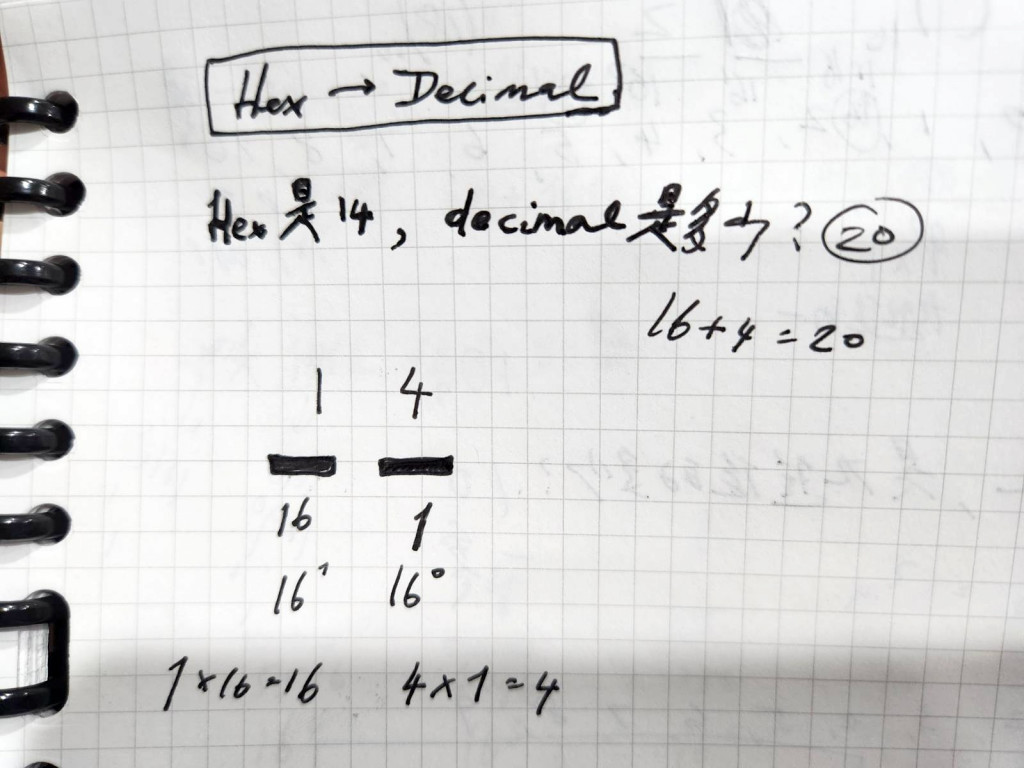 Hex → Decimal
Hex是14, decimal是多少? 20
16+4=20
1 4
16 1
16¹ 16⁰
1×16=16 4×1=4